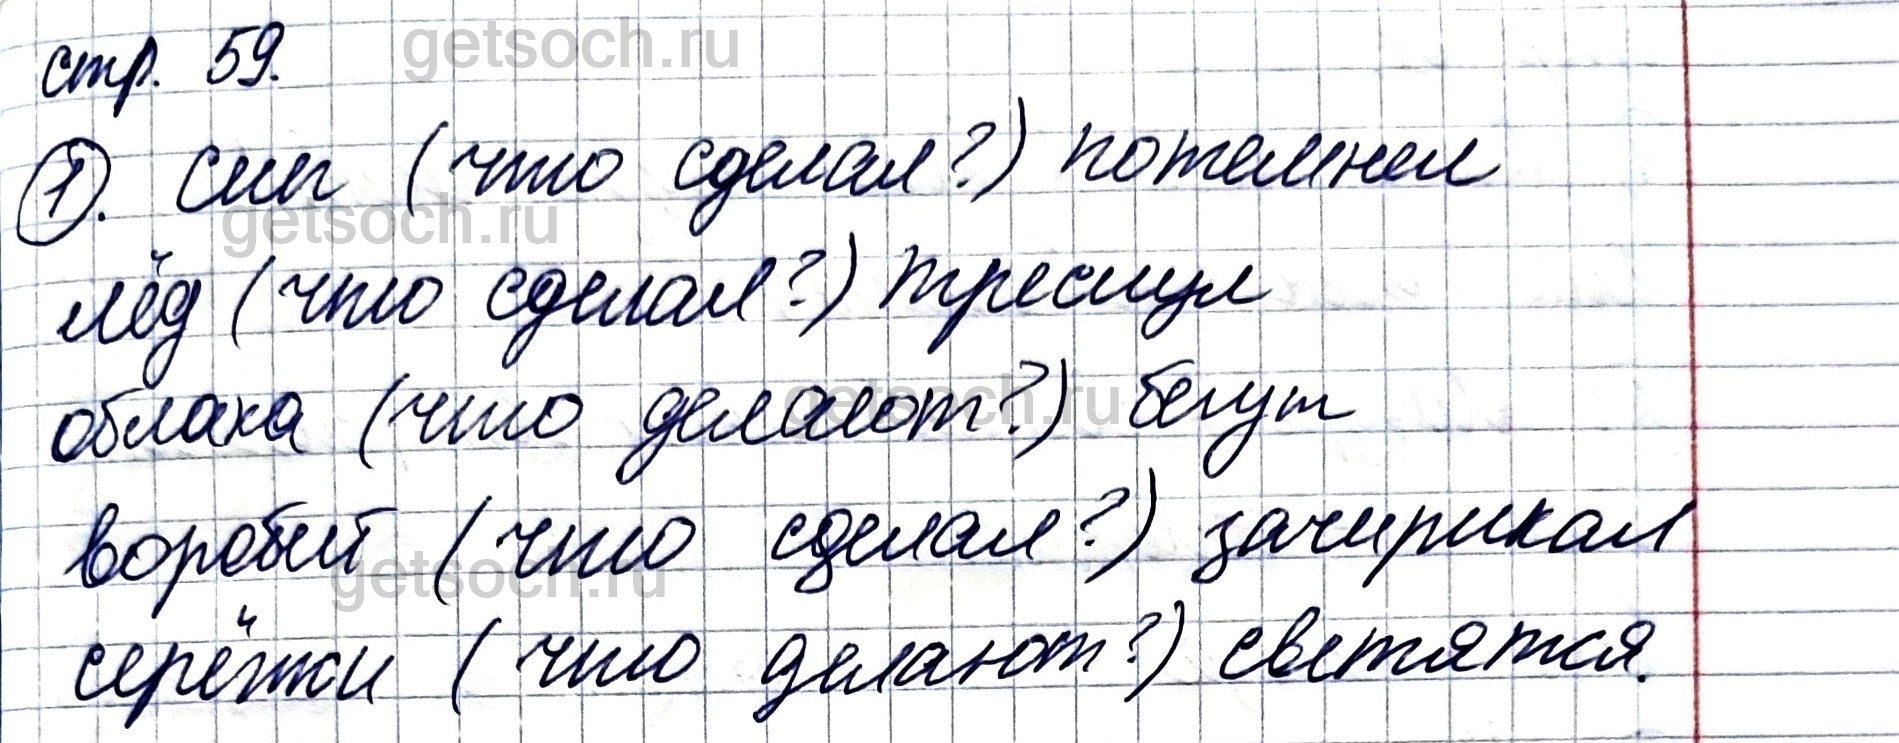 стр. 59.
getsoch.ru
1. Снег (что сделал?) потемнел
getsoch.ru
лёд (что сделал?) треснул
облака (что делают?) бегут
getsoch.ru
воробей (что сделал?) зачирикал
getsoch.ru
серёжки (что делают?) светятся.